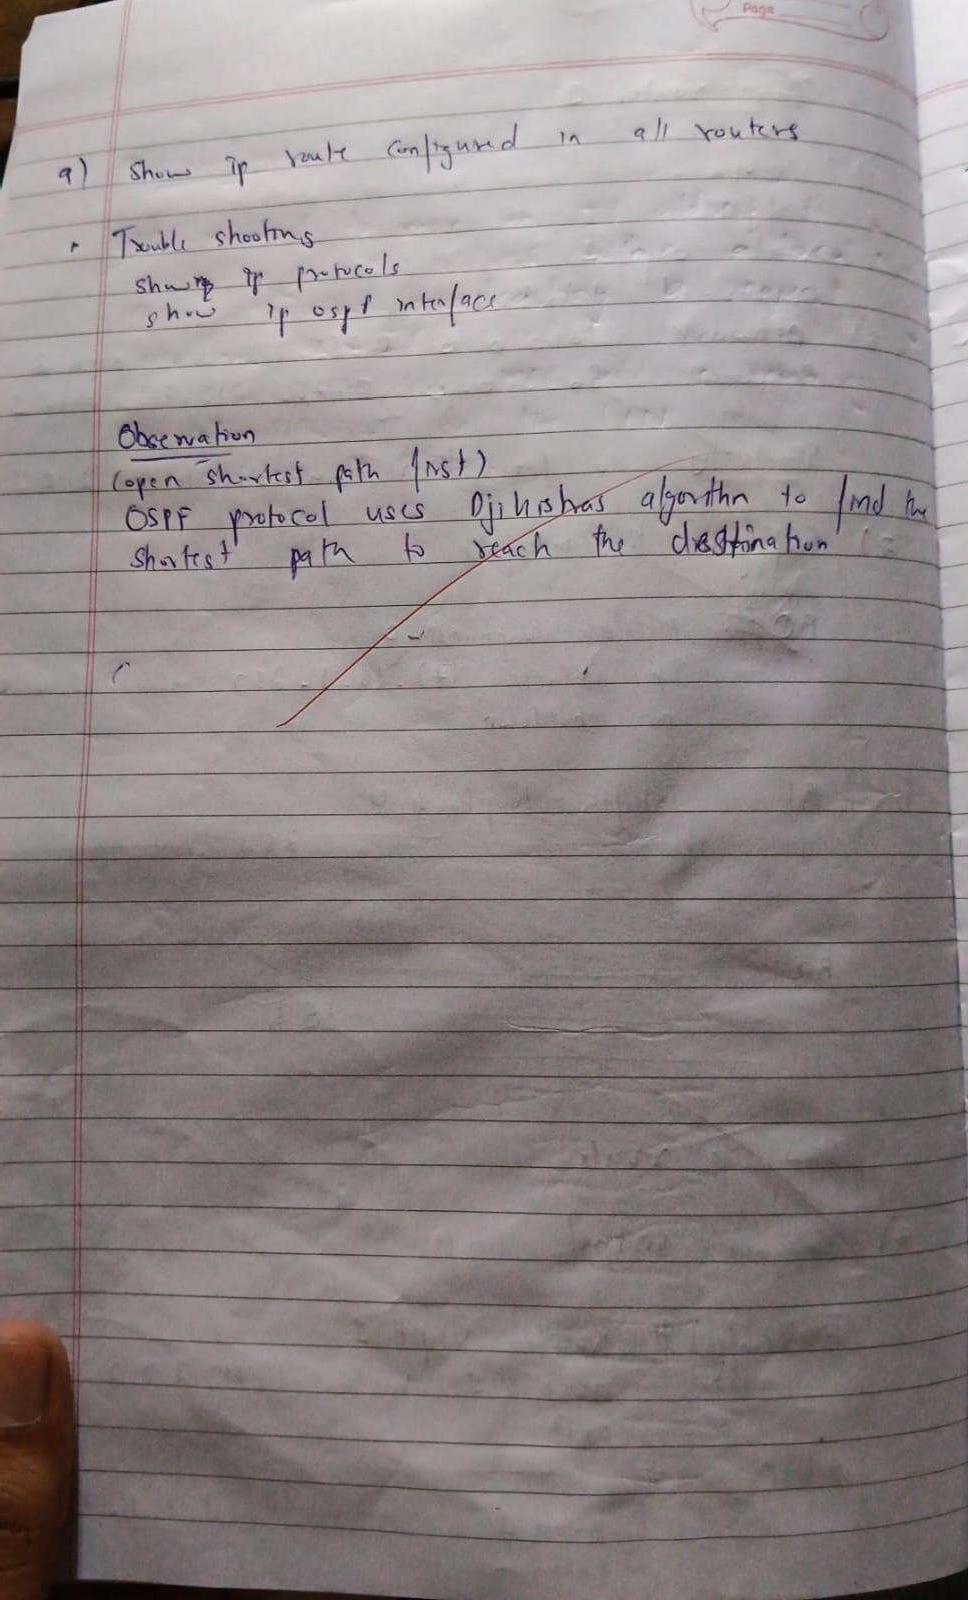 Page
9) Show ip route configured in all routers
• Trouble shooting
show ip protocols
show ip ospf interface
Observation
(open shortest path first)
OSPF protocol uses Djikstras algorithn to find the
shortest path to reach the destination